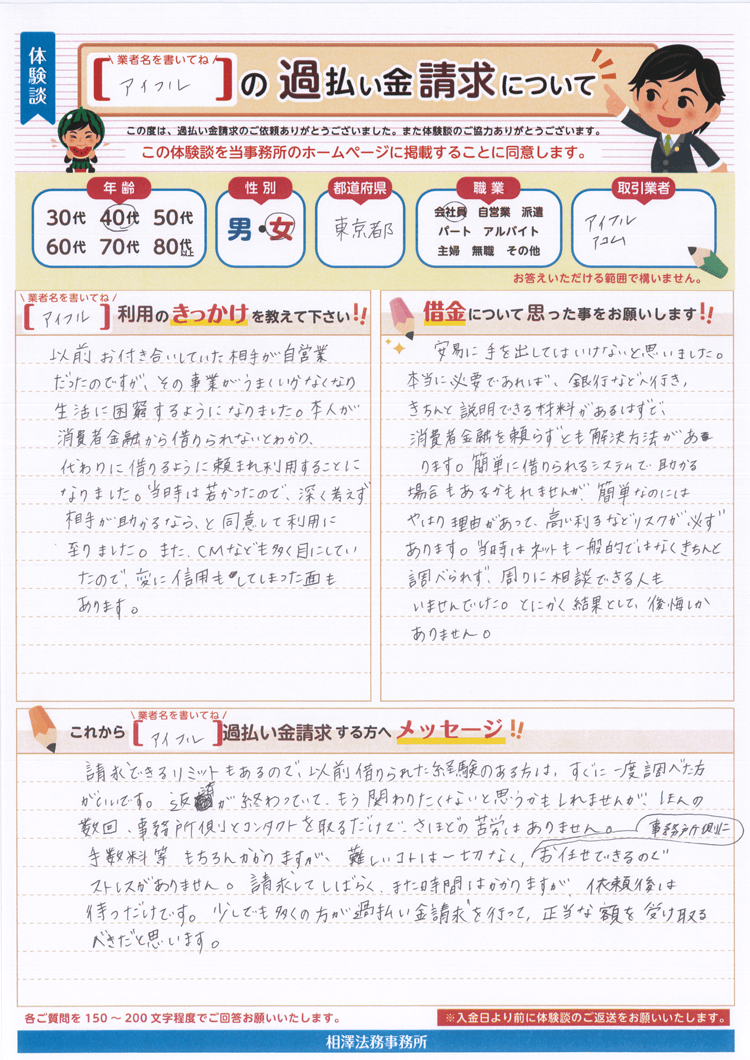 体験談
業者名を書いてね
アイフル
の過払い金請求について
この度は、過払い金請求のご依頼ありがとうございました。また体験談のご協力ありがとうございます。
この体験談を当事務所のホームページに掲載することに同意します。
年齢
30代 40代 50代
60代 70代 80代以上
性別
男・女
都道府県
東京都
職業
会社員 自営業 派遣
パート アルバイト
主婦 無職 その他
取引業者
アイフル
アコム
お答えいただける範囲で構いません。
業者名を書いてね
[アイフル]利用のきっかけを教えて下さい!!
以前お付き合いしていた相手が自営業
だったのですが、その事業がうまくいかなくなり
生活に困窮するようになりました。本人が
消費者金融から借りられないとわかり、
代わりに借りるように頼まれ利用することに
なりました。当時は若かったので、深く考えず
相手が助かるなら、と同意して利用に
至りました。また、CMなども多く目にしてい
たので、変に信用もしてしまった面も
あります。
借金について思った事をお願いします!!
安易に手を出してはいけないと思いました。
本当に必要であれば、銀行などへ行き、
きちんと説明できる材料があるはずで、
消費者金融を頼らずとも解決方法があ
ります。簡単に借りられるシステムで助かる
場合もあるかもれませんが、簡単なのには
やはり理由があって、高い利子などリスクが必ず
あります。当時はネットも一般的ではなくきちんと
調べられず、周りに相談できる人も
いませんでした。とにかく結果として、後悔しか
ありません。
業者名を書いてね
これから[アイフル]過払い金請求する方へメッセージ!!
請求できるリミットもあるので、以前借りられた経験のある方は、すぐに一度調べた方
がいいです。返済が終わっていて、もう関わりたくないと思うかもしれませんが、ほんの
数回、事務所側とコンタクトを取るだけで、さほどの苦労はありません。
事務所側に
手数料等もちろんかかりますが、難しいコトは一切なく、お任せできるので
ストレスがありません。請求してしばらく、また時間はかかりますが、依頼後は
待つだけです。少しでも多くの方が過払い金請求を行って、正当な額を受け取る
べきだと思います。
各ご質問を150～200文字程度でご回答お願いいたします。
※入金日より前に体験談のご返送をお願いいたします。
相澤法務事務所